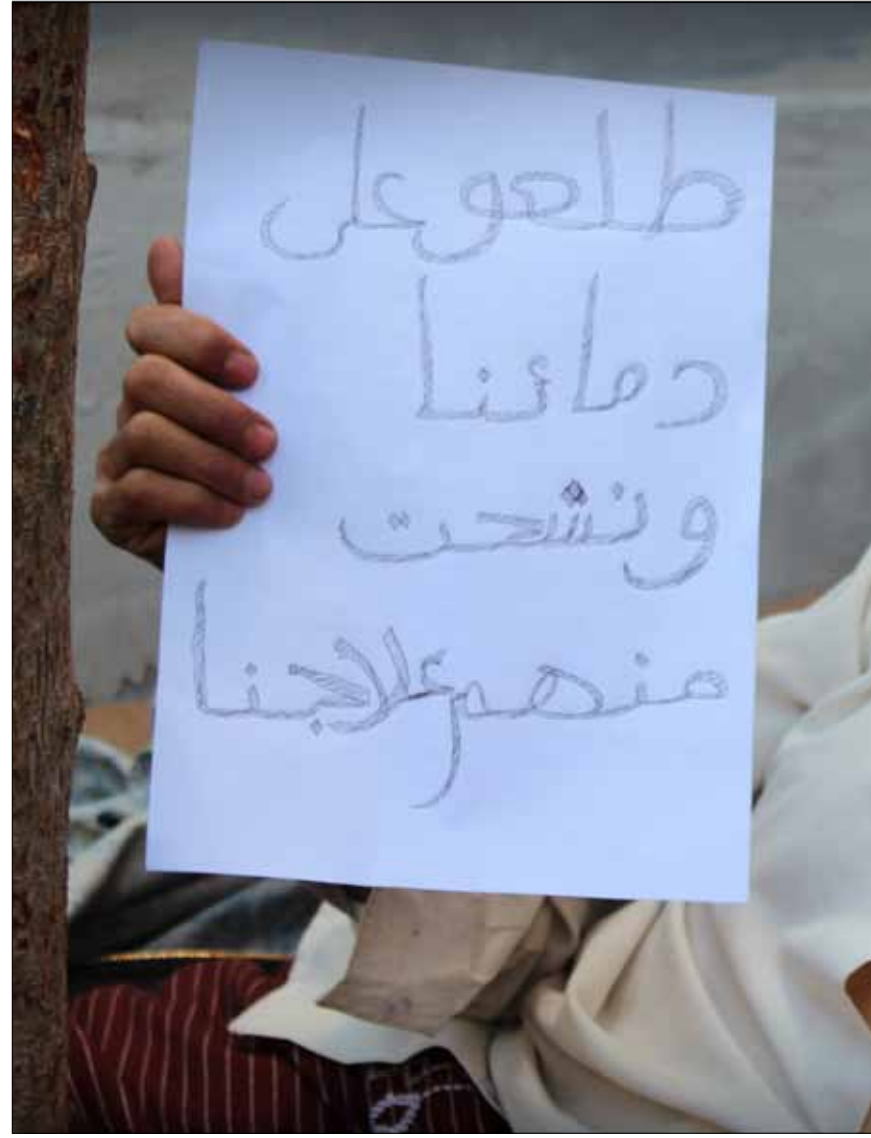 طلعو على
دمائنا
ونشحت
منهم ئلاجنا